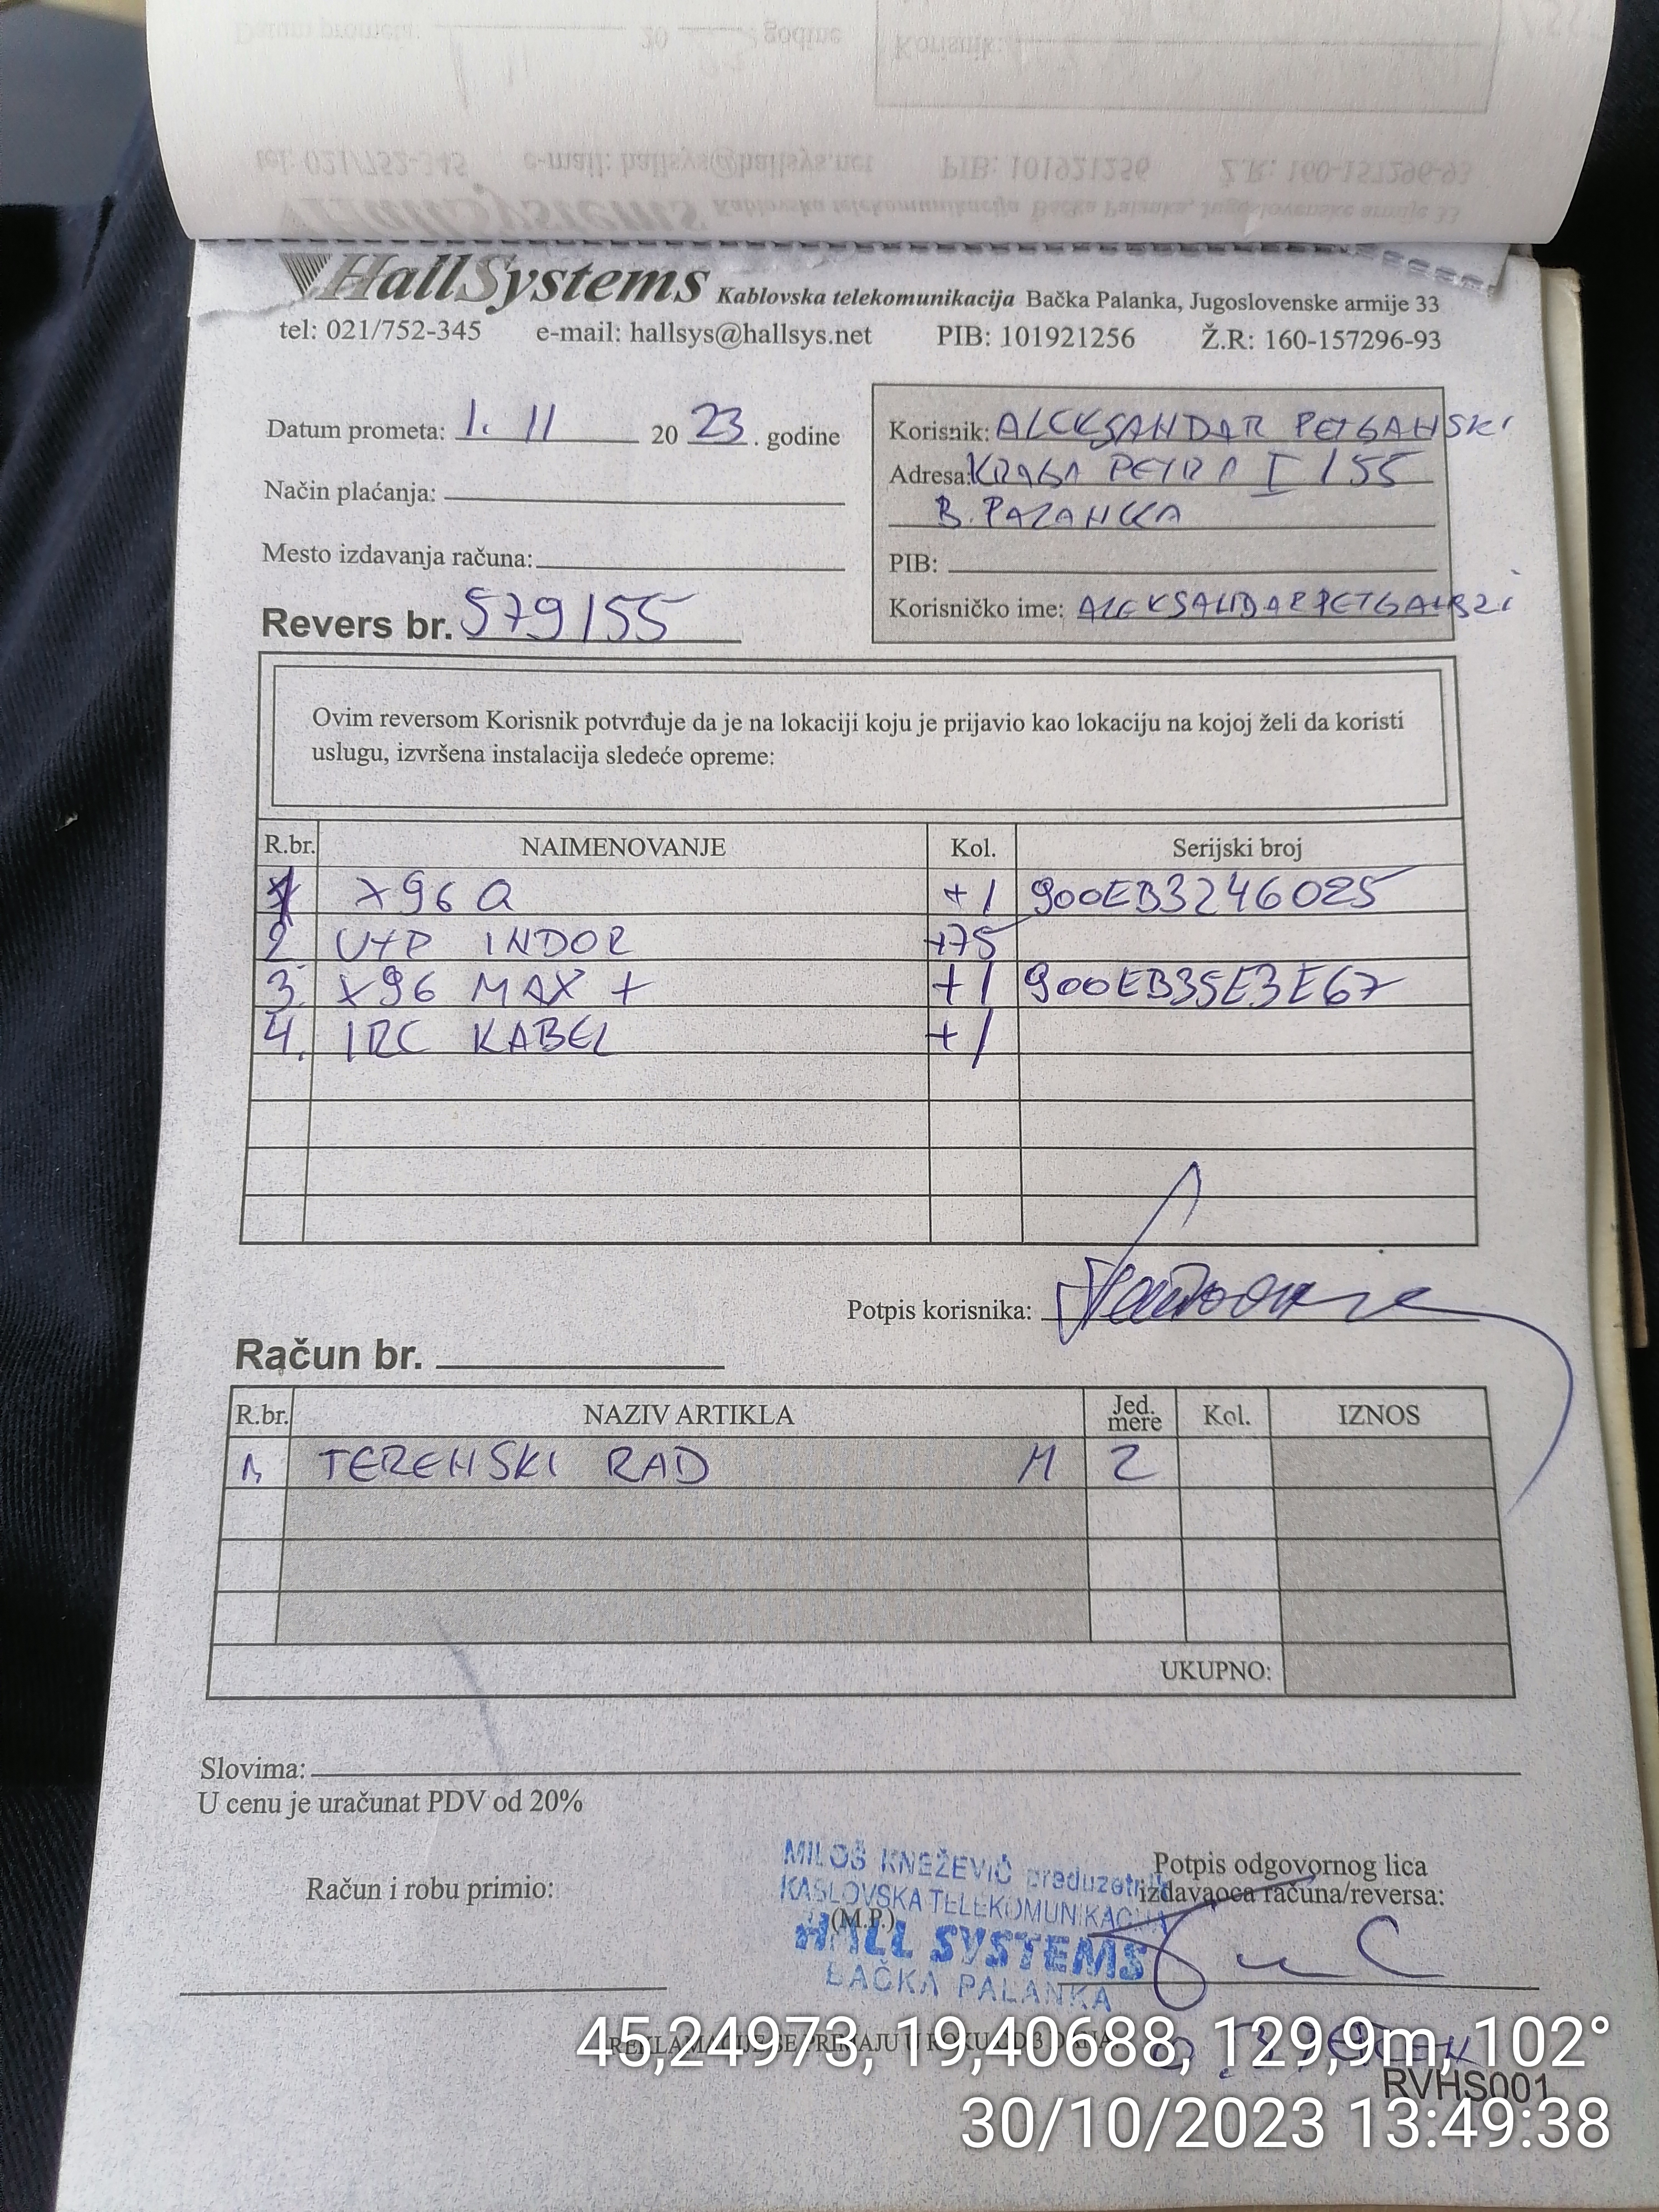 HallSystems Kablovska telekomunikacija Bačka Palanka, Jugoslovenske armije 33
tel: 021/752-345 e-mail: hallsys@hallsys.net PIB: 101921256 Ž.R: 160-157296-93
Datum prometa: 1. 11 2023. godine
Način plaćanja:
Mesto izdavanja računa:
Revers br. 579/55
Korisnik: ALEKSANDAR PETGANSKI
Adresa: KRALJA PETRA I /55
B. PALANKA
PIB:
Korisničko ime: ALEKSANDARPETGANSKI
Ovim reversom Korisnik potvrđuje da je na lokaciji koju je prijavio kao lokaciju na kojoj želi da koristi
uslugu, izvršena instalacija sledeće opreme:
R.br. NAIMENOVANJE Kol. Serijski broj
1 X96 Q +1 900EB3246025
2 UTP INDOR +75
3. X96 MAX + +1 900EB35E3E67
4. IRC KABEL +1
Potpis korisnika:
Račun br.
R.br. NAZIV ARTIKLA Jed. mere Kol. IZNOS
1. TERENSKI RAD M 2
UKUPNO:
Slovima:
U cenu je uračunat PDV od 20%
Račun i robu primio:
MILOŠ KNEŽEVIĆ preduzetnik
KABLOVSKA TELEKOMUNIKACIJA
(M.P.)
HALL SYSTEMS
BAČKA PALANKA
Potpis odgovornog lica
izdavaoca računa/reversa:
REKLAMACIJE SE PRIMAJU U ROKU OD 3 DANA
RVHS001
45,24973, 19,40688, 129,9m, 102°
30/10/2023 13:49:38